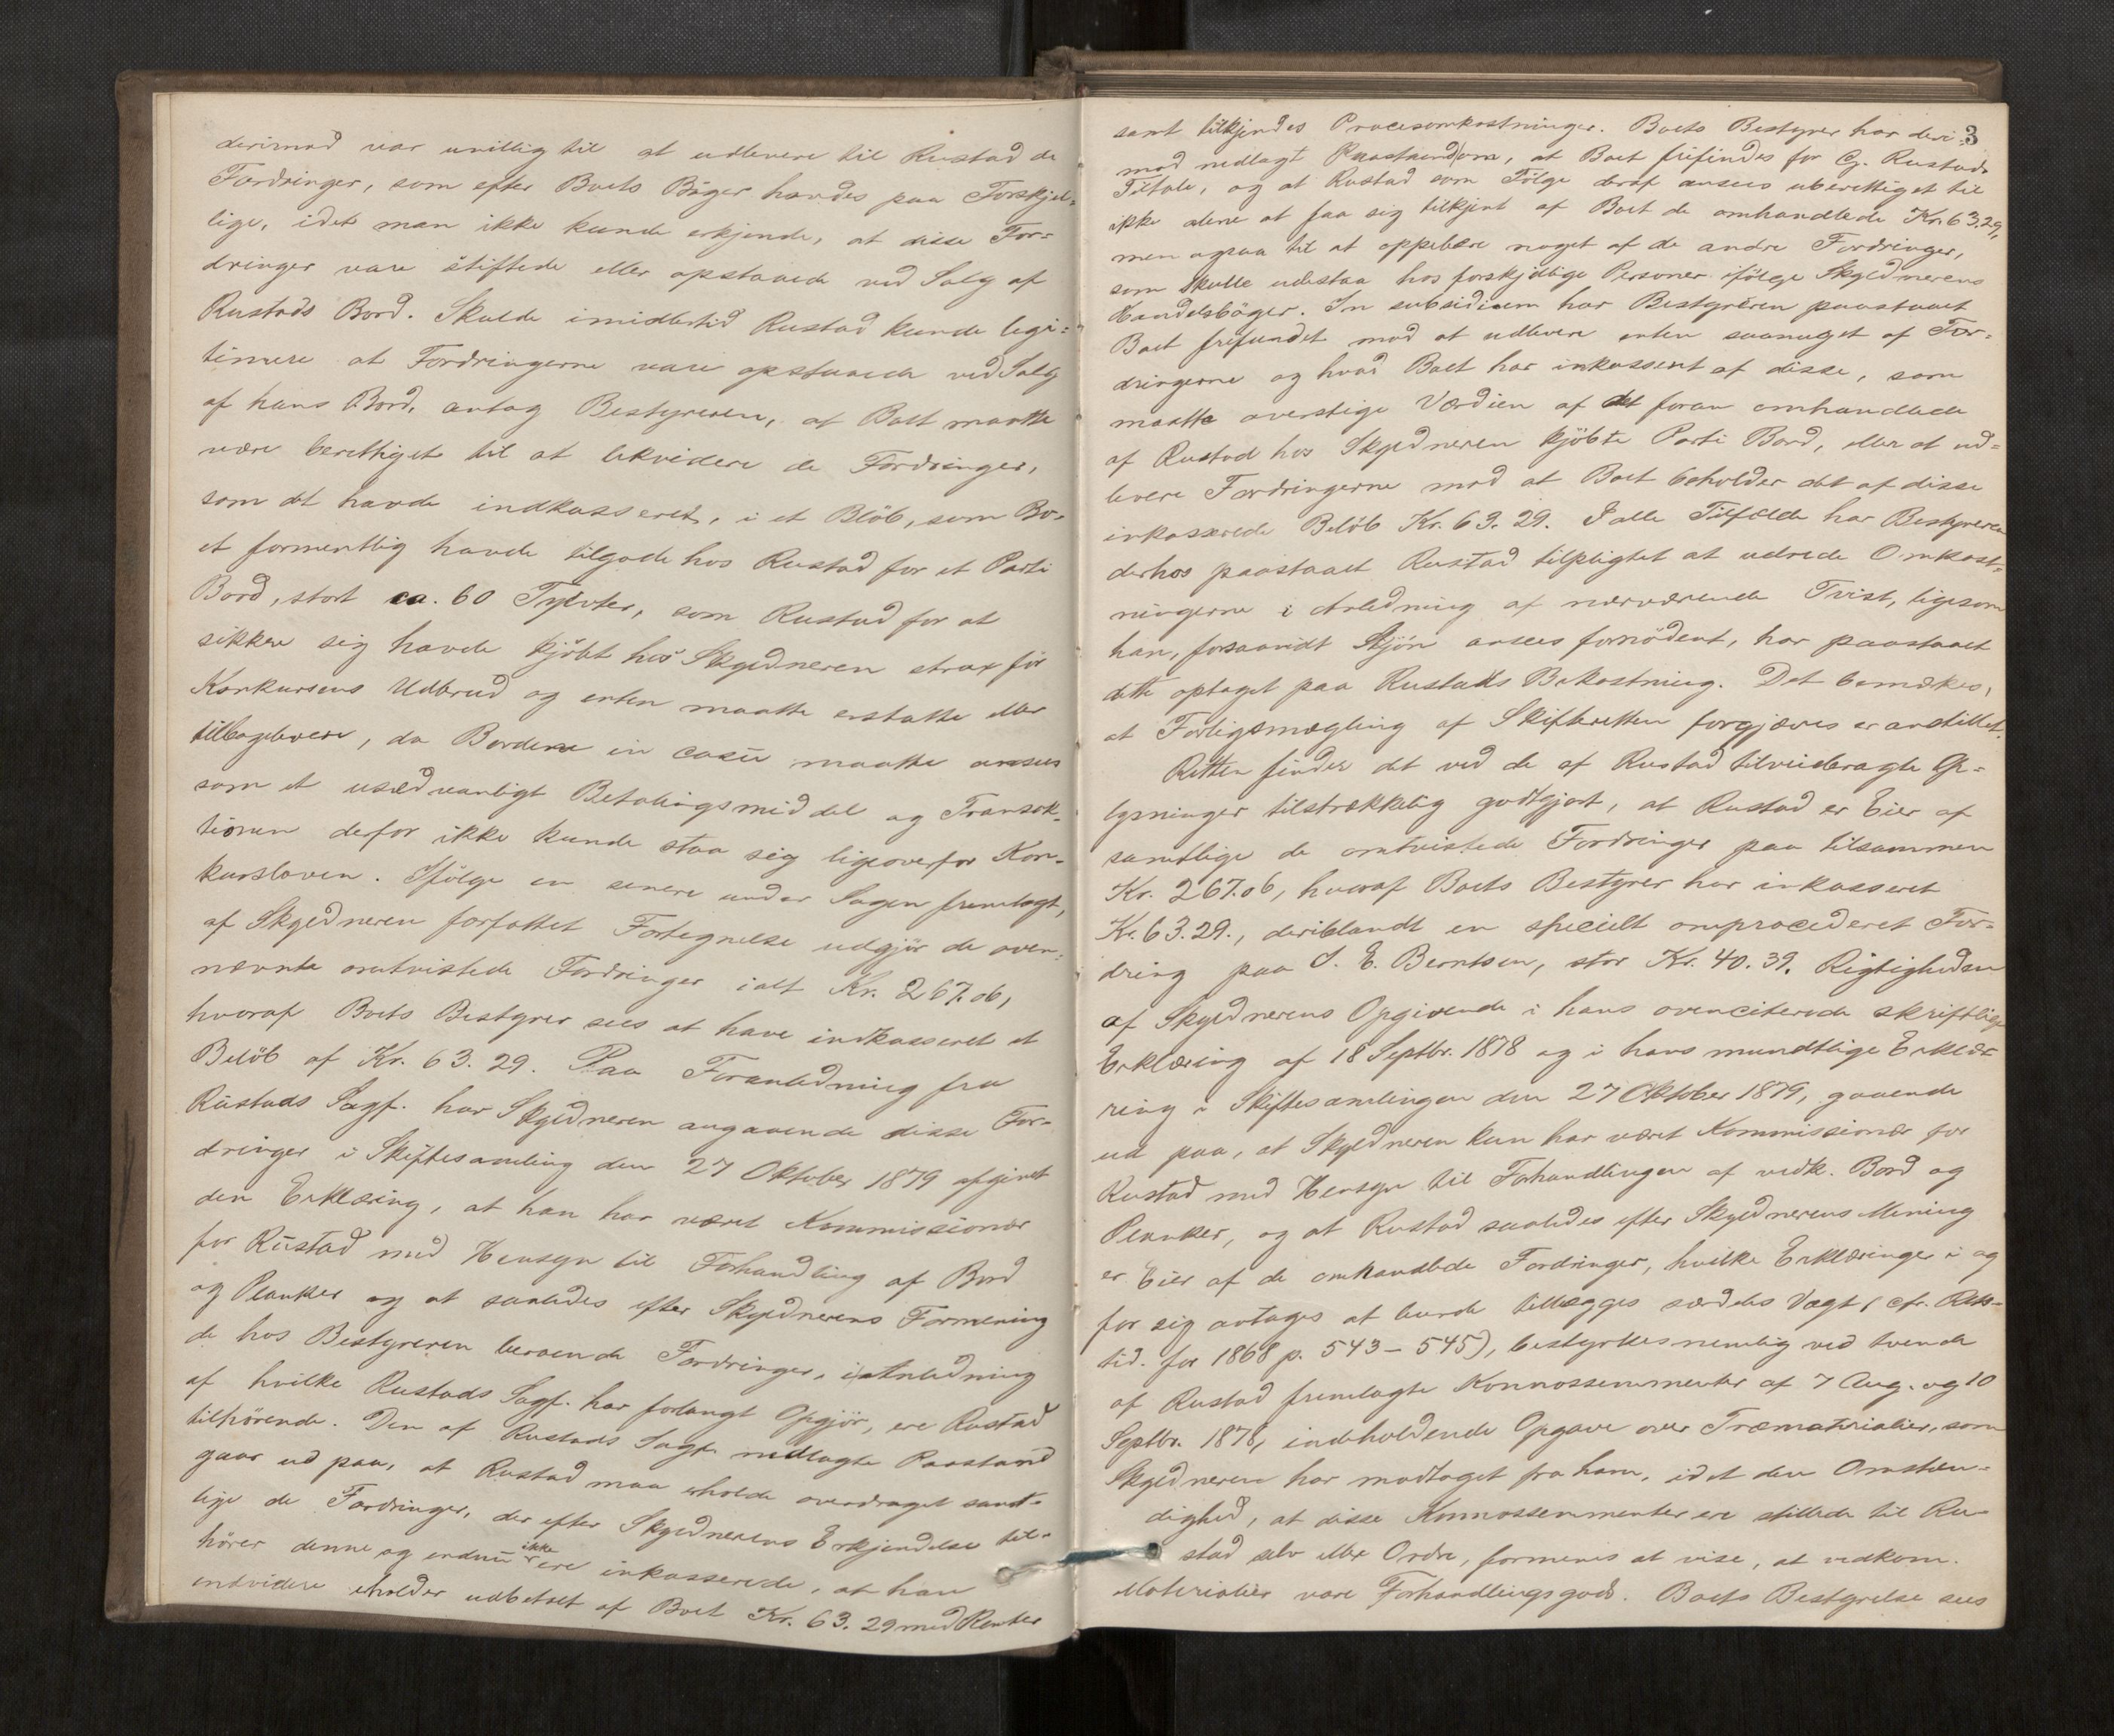 derimod var uvillig til at udlevere til Rustad de
Fordringer, som efter Boets Böger havdes paa Forskjel-
lige, idet man ikke kunde erkjende, at disse For-
dringer vare stiftede eller opstaaede ved Salg af
Rustads Bord. Skulde imidlertid Rustad kunde legi-
timere at Fordringerne vare opstaaede ved Salg
af hans Bord, antog Bestyreren, at Boet maatte
være berettiget til at likvidere de Fordringer,
som det havde indkasseret, i et Blöb, som Bo-
et formentlig havde tilgode hos Rustad for et Parti
Bord, stort ca. 60 Tylvter, som Rustad for at
sikkre sig havde kjöbt hos Skyldneren strax för
Konkursens Udbrud og enten maatte erstatte eller
tilbagelevere, da Bordene in casu maatte ansees
som et usædvanligt Betalingsmiddel og Transak-
tionen derfor ikke kunde staa sig ligeoverfor Kon-
kursloven. Ifölge en senere under Sagen fremlagt,
af Skyldneren forfattet Fortegnelse udgjör de oven-
nævnte omtvistede Fordringer ialt Kr. 267.06,
hvoraf Boets Bestyrer sees at have indkasseret et
Belöb af Kr. 63.29. Paa Foranledning fra
Rustads Sagf. har Skyldneren angaaende disse For-
dringer i Skiftesamling den 27 Oktober 1879 afgivet
den Erklæring, at han har været Kommissionær
for Rustad med Hensyn til Forhandling af Bord
og Planker og at saaledes efter Skyldnerens Formening
de hos Bestyreren beroende Fordringer, i Anledning
af hvilke Rustads Sagf. har forlangt Opgjör, ere Rustad
tilhörende. Den af Rustads Sagf. nedlagte Paastand
gaar ud paa, at Rustad maa erholde overdraget samt-
lige de Fordringer, der efter Skyldnerens Erkjendelse til-
hörer denne og endnu ikke ere inkasserede, at han
endvidere erholder udbetalt af Boet Kr. 63.29 med Renter
3
samt tilkjendes Procesomkostninger. Boets Bestyrer har deri-
mod nedlagt Paastand om, at Boet frifindes for G. Rustads
Tiltale, og at Rustad som Fölge deraf ansees uberettiget til
ikke alene at faa sig tilkjent af Boet de omhandlede Kr. 63.29,
men ogsaa til at oppebære noget af de andre Fordringer,
som skulle udestaa hos forskjellige Personer ifölge Skyldnerens
Handelsböger. In subsidium har Bestyreren paastaaet
Boet frifundet mod at udlevere enten saameget af For-
dringerne og hvad Boet har inkasseret af disse, som
maatte overstige Værdien af det foran omhandlede
af Rustad hos Skyldneren kjöbte Parti Bord, eller at ud-
levere Fordringerne mod at Boet beholder det af disse
inkasserede Belöb Kr. 63.29. I alle Tilfælde har Bestyreren
derhos paastaaet Rustad tilpligtet at udrede Omkost-
ningerne i Anledning af nærværende Tvist, ligesom
han, forsaavidt Skjön ansees fornödent, har paastaaet
dette optaget paa Rustads Bekostning. Det bemærkes,
at Forligsmægling af Skifteretten forgjæves er anstillet.
Retten finder det ved de af Rustad tilveiebragte Op-
lysninger tilstrækkelig godtgjort, at Rustad er Eier af
samtlige de omtvistede Fordringer paa tilsammen
Kr. 267.06, hvoraf Boets Bestyrer har inkasseret
Kr. 63.29., deriblandt en specielt omprocederet For-
dring paa S. E. Berntsen, stor Kr. 40.39. Rigtigheden
af Skyldnerens Opgivende i hans ovenciterede skriftlige
Erklæring af 18 Septbr. 1878 og i hans mundtlige Erklæ-
ring i Skiftesamlingen den 27 Oktober 1879, gaaende
ud paa, at Skyldneren kun har været Kommissionær for
Rustad med Hensyn til Forhandlingen af vedk. Bord og
Planker, og at Rustad saaledes efter Skyldnerens Mening
er Eier af de omhandlede Fordringer, hvilke Erklæringer i og
for sig antages at burde tillægges særdeles Vægt (cfr. Rets-
tid. for 1868 p. 543-545), bestyrkes nemlig ved tvende
af Rustad fremlagte Konnossementer af 7 Aug. og 10
Septbr. 1878, indeholdende Opgave over Træmaterialier, som
Skyldneren har modtaget fra ham, idet den Omstæn-
dighed, at disse Konnossementer ere stillede til Ru-
stad selv eller Ordre, formenes at vise, at vedkom.
Materialier vare Forhandlingsgods. Boets Bestyrelse sees